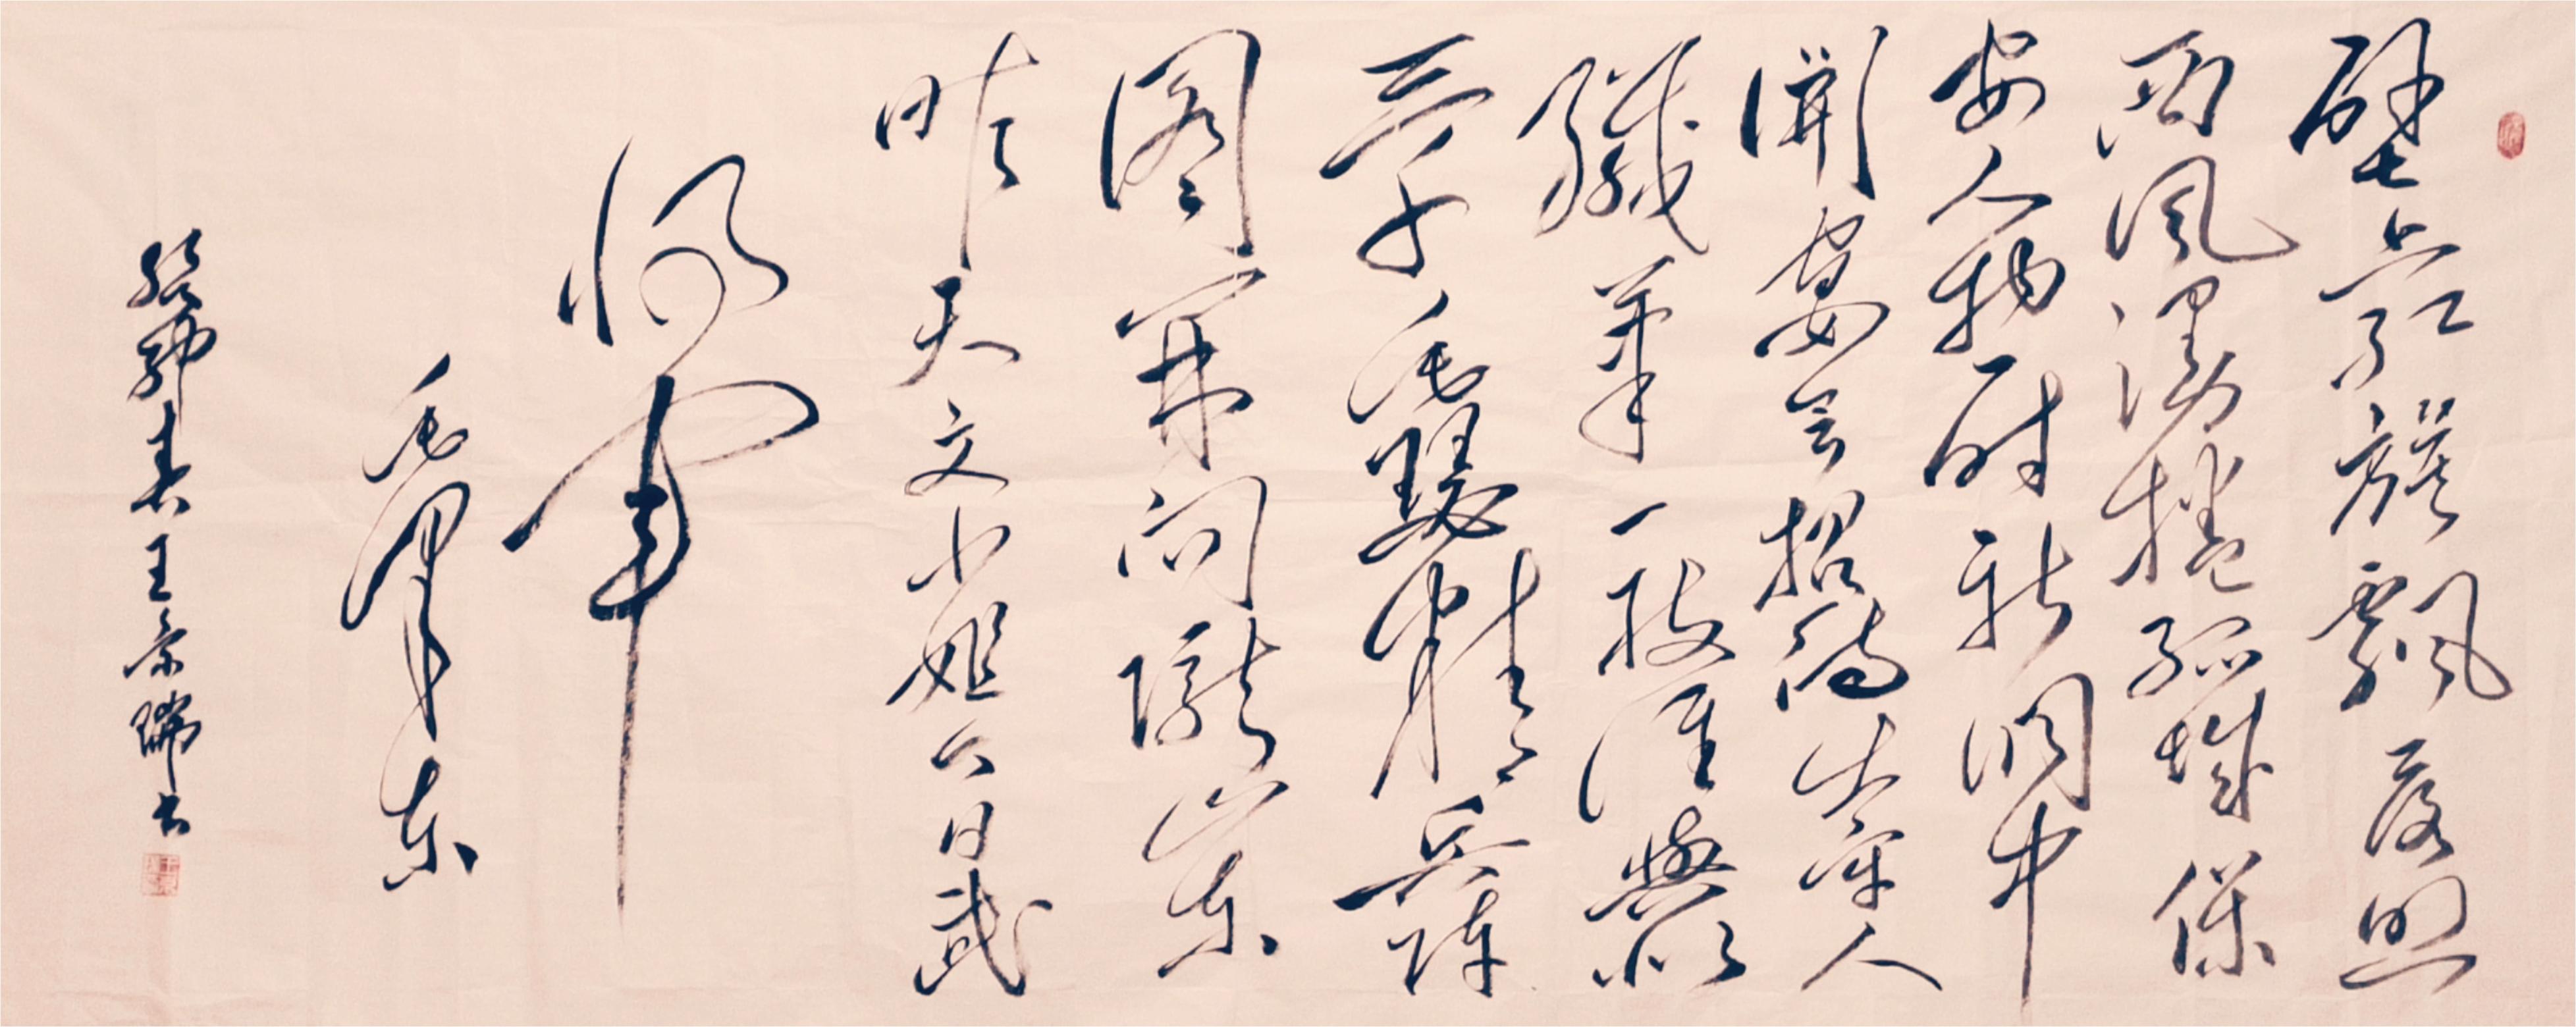 壁上红旗飘落照
西风漫卷孤城保
安人物一时新洞中
开宴会招待出牢人
纤笔一枝谁与似
三千毛瑟精兵阵
图开向陇山东
昨天文小姐今日武
将军
毛泽东
王景瑞书